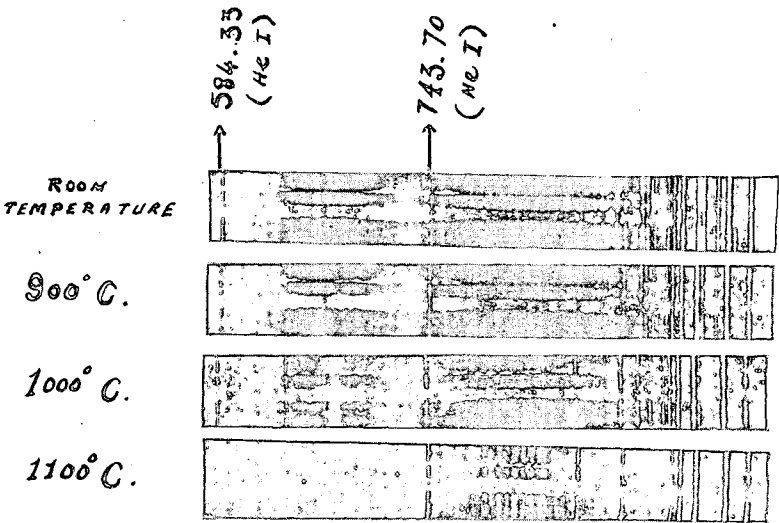 584.33
(He I)
743.70
(Ne I)
ROOM
TEMPERATURE
900° C.
1000° C.
1100° C.